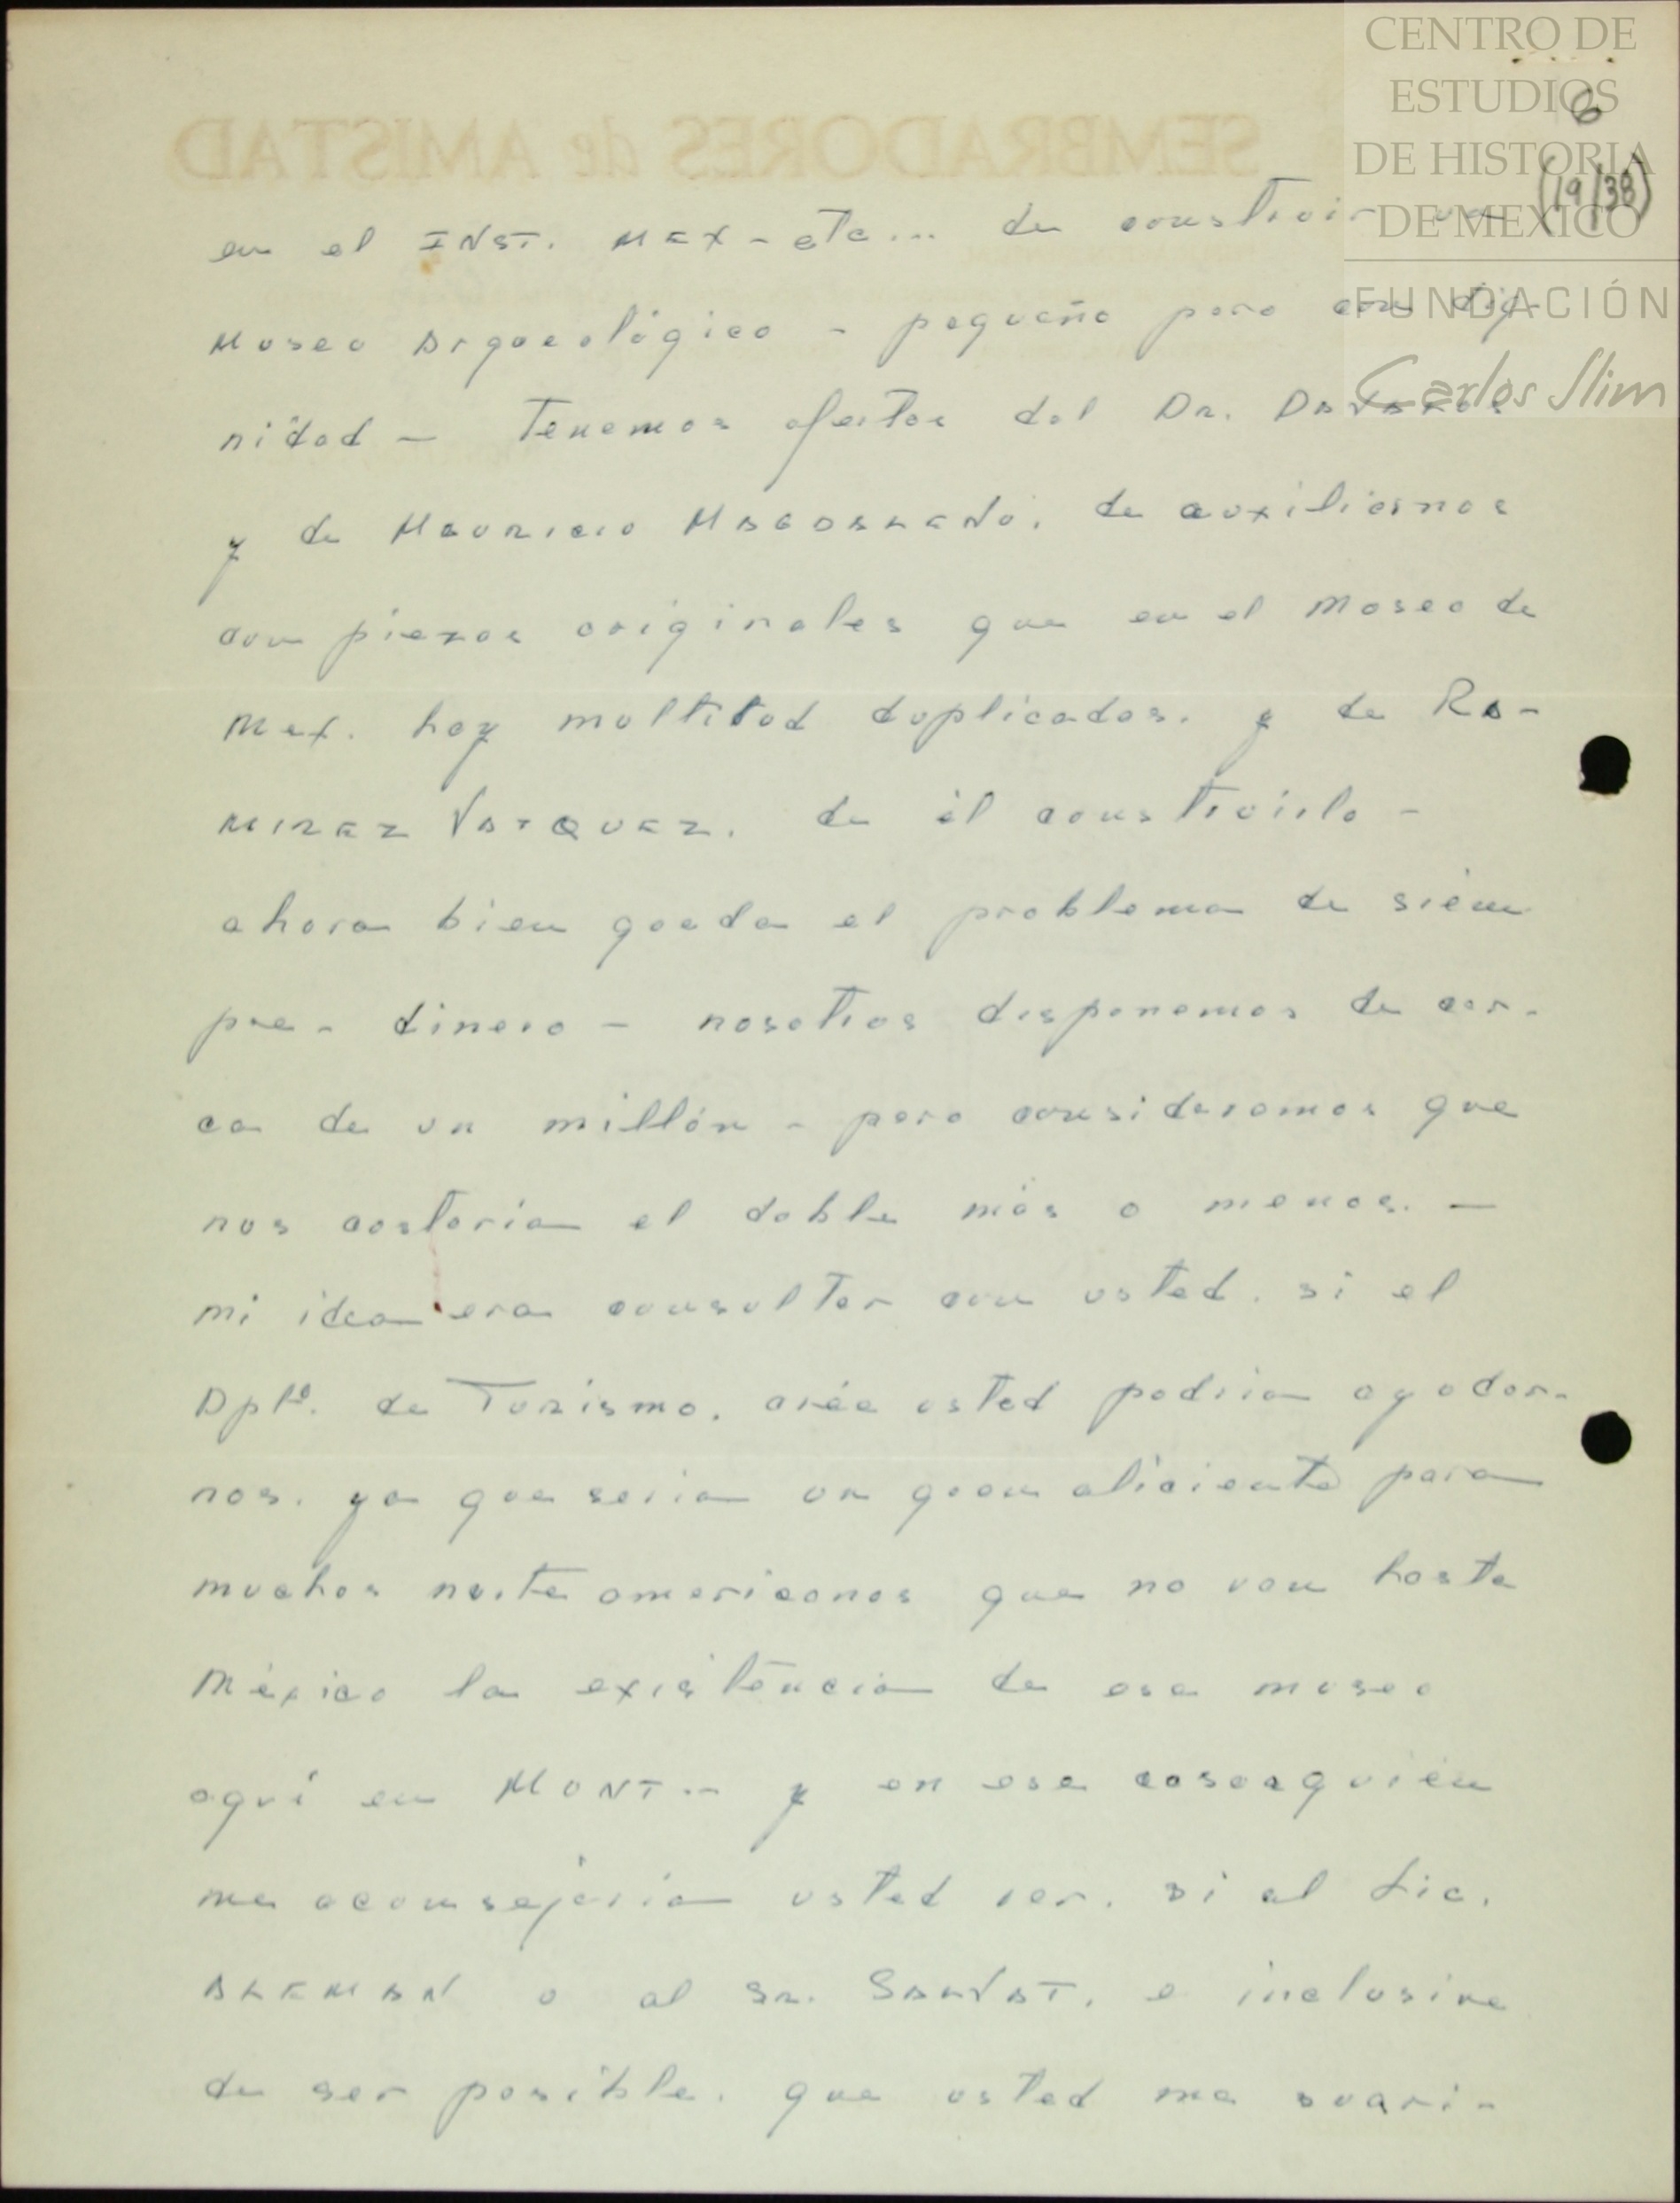 CENTRO DE
ESTUDIOS
DE HISTORIA
DE MEXICO
FUNDACIÓN
Carlos Slim
6
(19/38)
SEMBRADORES de AMISTAD
en el INST. MEX-etc... de construir un
Museo Arqueológico - pequeño pero con dig-
nidad - Tenemos ofertas del Dr. DAVALOS
y de MAURICIO MAGDALENO, de auxiliarnos
con piezas originales que en el Museo de
Mex. hay multitud duplicados. y de RA-
MIREZ VAZQUEZ, de él construirlo -
ahora bien queda el problema de siem
pre - dinero - nosotros disponemos de cer-
ca de un millón - pero consideramos que
nos costaria el doble más o menos. -
mi idea era consultar con usted. si el
Dpto. de Turismo, crée usted podria ayudar-
nos. ya que seria un gran aliciente para
muchos norteamericanos que no van hasta
México la existencia de ese museo
aquí en MONT.- y en ese caso aquién
me aconsejaria usted ver. si al Lic.
ALEMAN o al Sr. SALVAT, e inclusive
de ser posible. que usted me